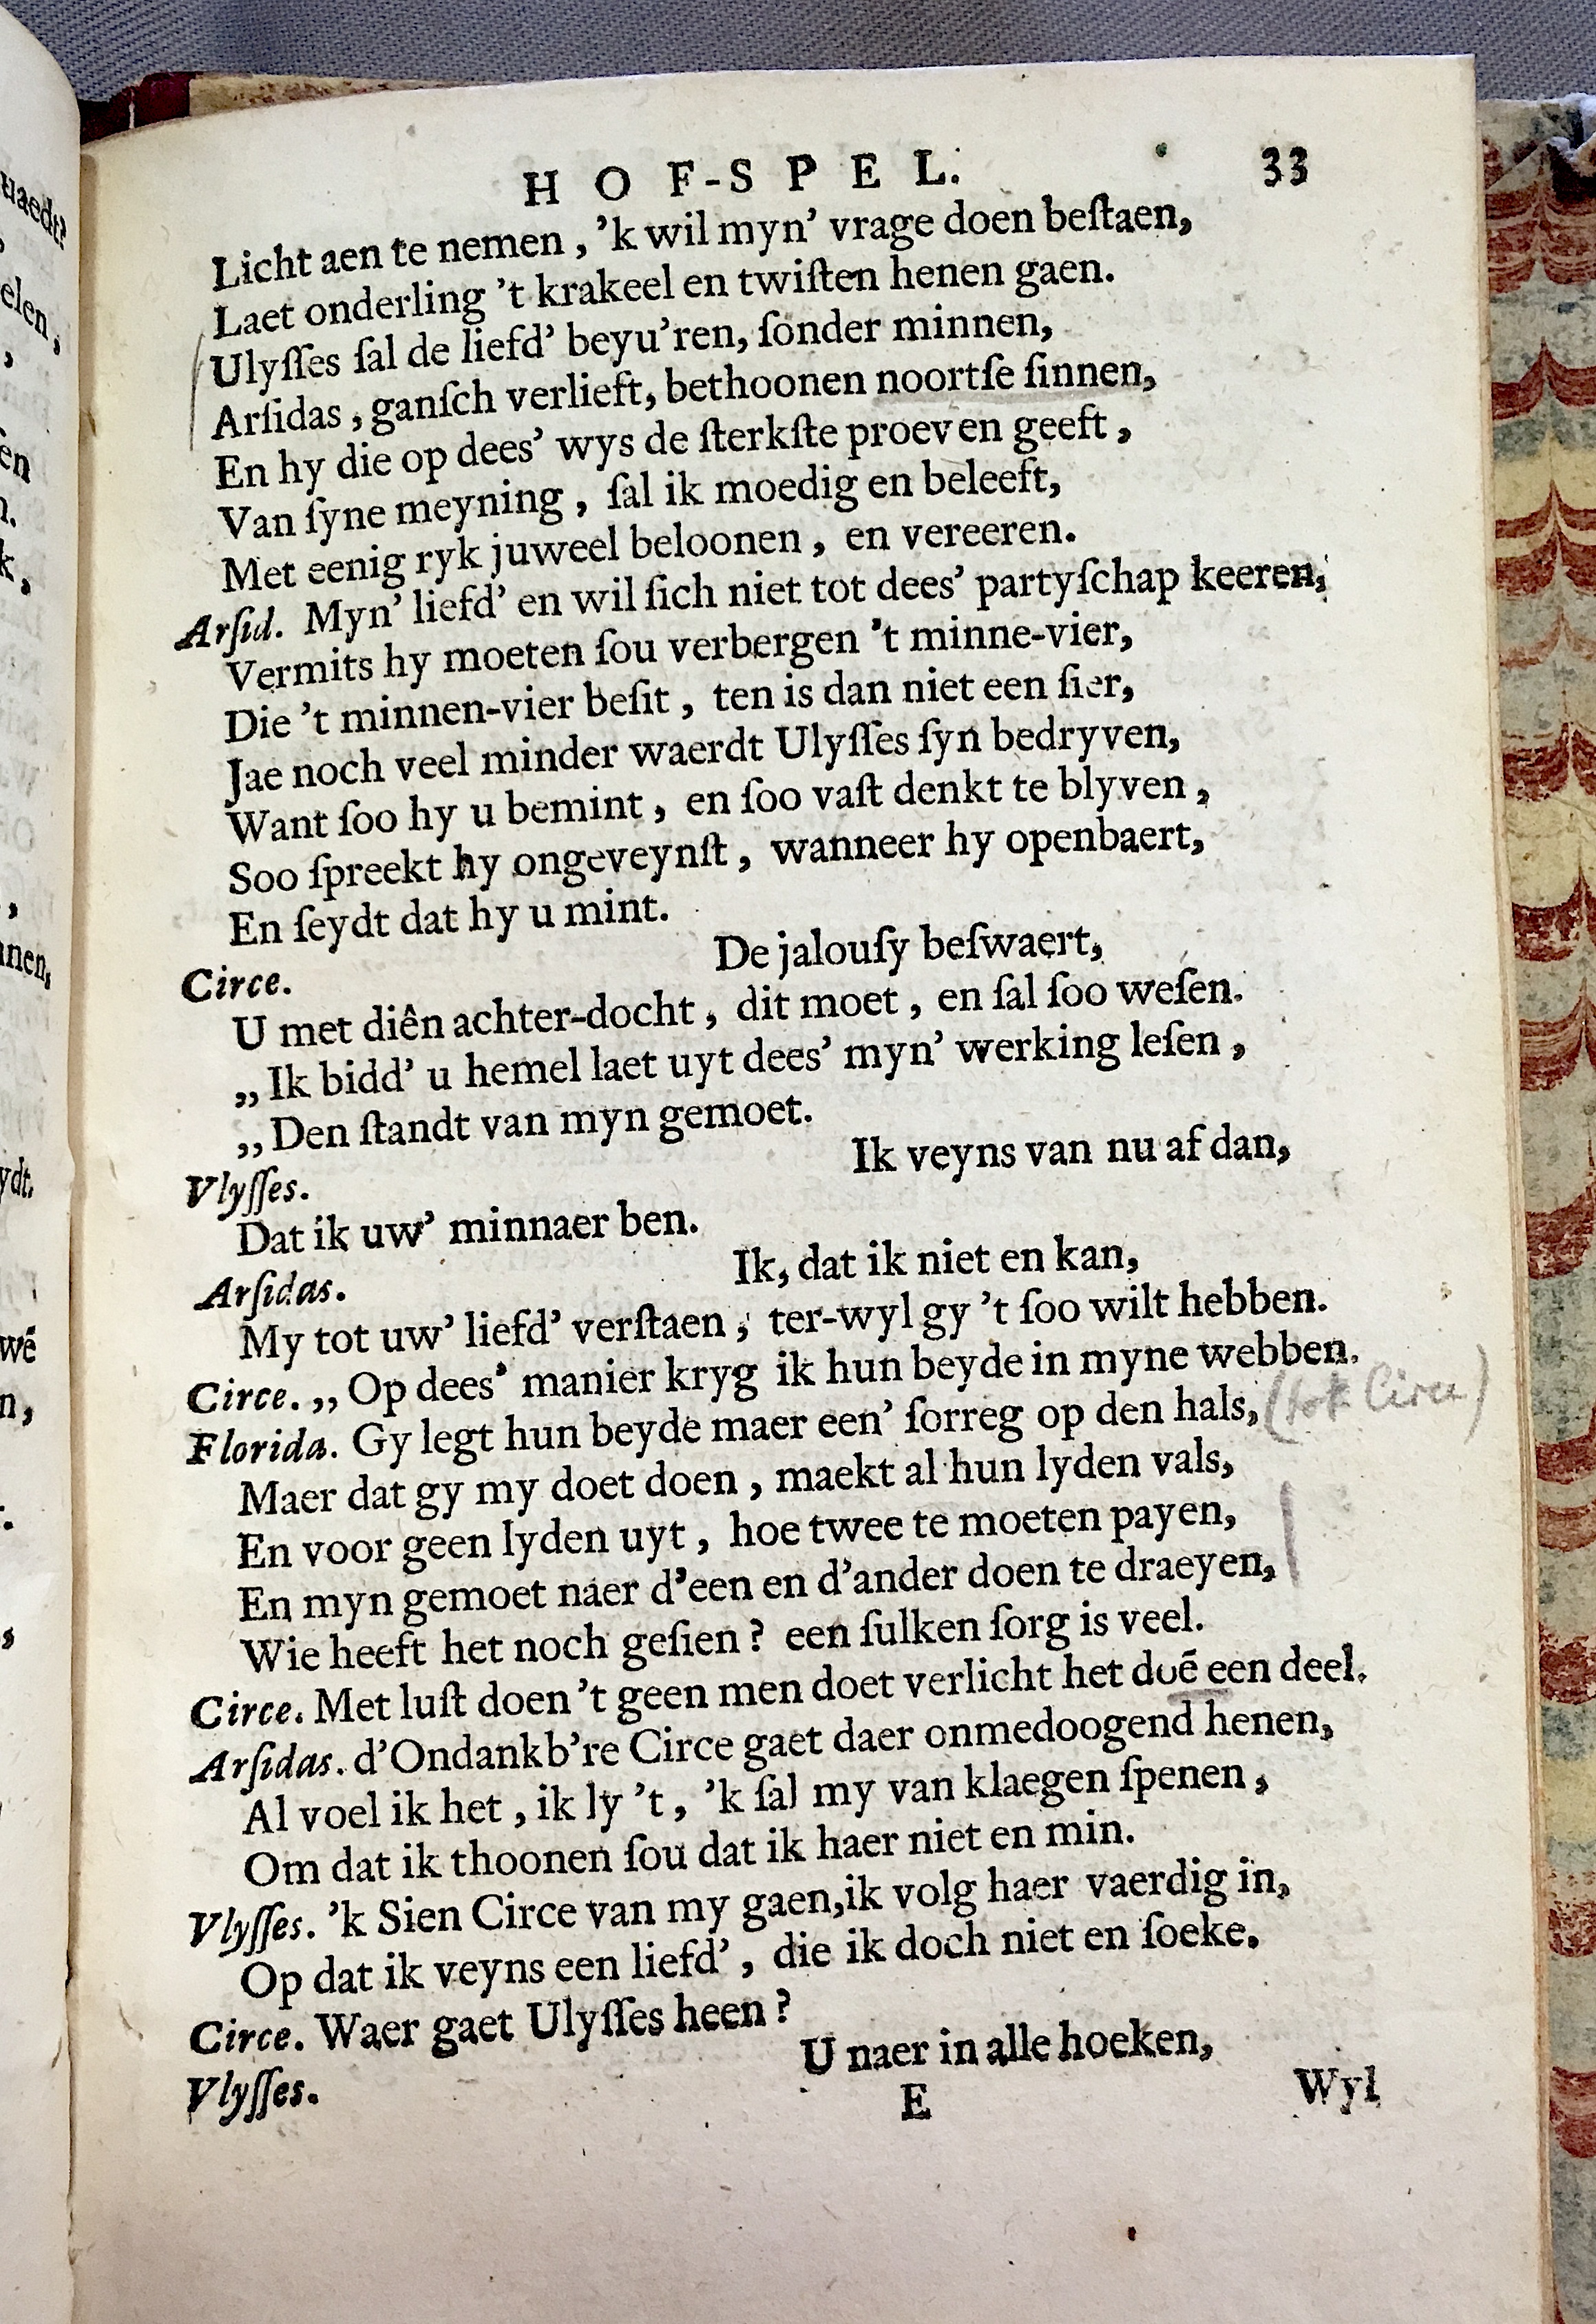 HOF-SPEL. 33
Licht aen te nemen, ’k wil myn’ vrage doen beſtaen,
Laet onderling ’t krakeel en twiſten henen gaen.
Ulyſſes ſal de liefd’ beyu’ren, ſonder minnen,
Arſidas, ganſch verlieft, bethoonen noortſe ſinnen,
En hy die op dees’ wys de ſterkſte proeven geeft,
Van ſyne meyning, ſal ik moedig en beleeft,
Met eenig ryk juweel beloonen, en vereeren.
Arſid. Myn’ liefd’ en wil ſich niet tot dees’ partyſchap keeren,
Vermits hy moeten ſou verbergen ’t minne-vier,
Die ’t minnen-vier beſit, ten is dan niet een ſier,
Jae noch veel minder waerdt Ulyſſes ſyn bedryven,
Want ſoo hy u bemint, en ſoo vaſt denkt te blyven,
Soo ſpreekt hy ongeveynſt, wanneer hy openbaert,
En ſeydt dat hy u mint.
Circe. De jalouſy beſwaert,
U met diên achter-docht, dit moet, en ſal ſoo weſen.
„Ik bidd’ u hemel laet uyt dees’ myn’ werking leſen,
„Den ſtandt van myn gemoet.
Vlyſſes. Ik veyns van nu af dan,
Dat ik uw’ minnaer ben.
Arſidas. Ik, dat ik niet en kan,
My tot uw’ liefd’ verſtaen, ter-wyl gy ’t ſoo wilt hebben.
Circe. „Op dees’ manier kryg ik hun beyde in myne webben.
Florida. Gy legt hun beyde maer een’ ſorreg op den hals, (tot Circe)
Maer dat gy my doet doen, maekt al hun lyden vals,
En voor geen lyden uyt, hoe twee te moeten payen,
En myn gemoet naer d’een en d’ander doen te draeyen,
Wie heeft het noch geſien? een ſulken ſorg is veel.
Circe. Met luſt doen ’t geen men doet verlicht het doē een deel.
Arſidas. d’Ondankb’re Circe gaet daer onmedoogend henen,
Al voel ik het, ik ly ’t, ’k ſal my van klaegen ſpenen,
Om dat ik thoonen ſou dat ik haer niet en min.
Vlyſſes. ’k Sien Circe van my gaen, ik volg haer vaerdig in,
Op dat ik veyns een liefd’, die ik doch niet en ſoeke.
Circe. Waer gaet Ulyſſes heen?
Vlyſſes. U naer in alle hoeken,
E Wyl